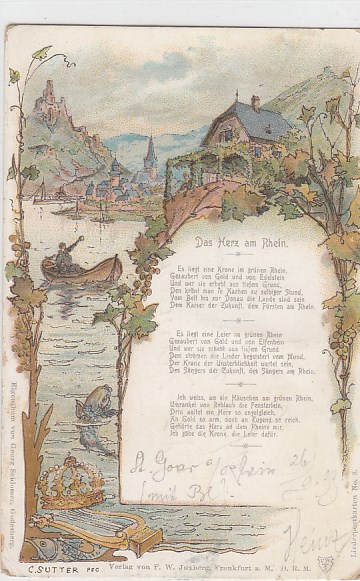 Das Herz am Rhein.
Es liegt eine Krone im grünen Rhein,
Gezaubert von Gold und von Edelstein,
Und wer sie erhebt aus tiefem Grund,
Den krönt man zu Aachen zu selbiger Stund,
Vom Belt bis zur Donau die Lande sind sein
Dem Kaiser der Zukunft, dem Fürsten am Rhein.
Es liegt eine Leier im grünen Rhein
Gezaubert von Gold und von Elfenbein
Und wer sie erhebt aus tiefem Grund
Dem strömen die Lieder begeistert vom Mund,
Der Kranz der Unsterblichkeit wartet sein,
Des Sängers der Zukunft, des Sängers am Rhein.
Ich weiss, wo ein Häuschen am grünen Rhein,
Umranket von Reblaub die Fensterlein,
Drin waltet ein Herz so engelgleich,
An Gold so arm, doch an Tugend so reich,
Gehörte das Herz an dem Rheine mir,
Ich gäbe die Krone, die Leier dafür.
St Goar a/Rhein 26
C. SUTTER PGC
Verlag von F. W. Juxberg, Frankfurt a. M. D. R. M.
Liederpostkarten No.